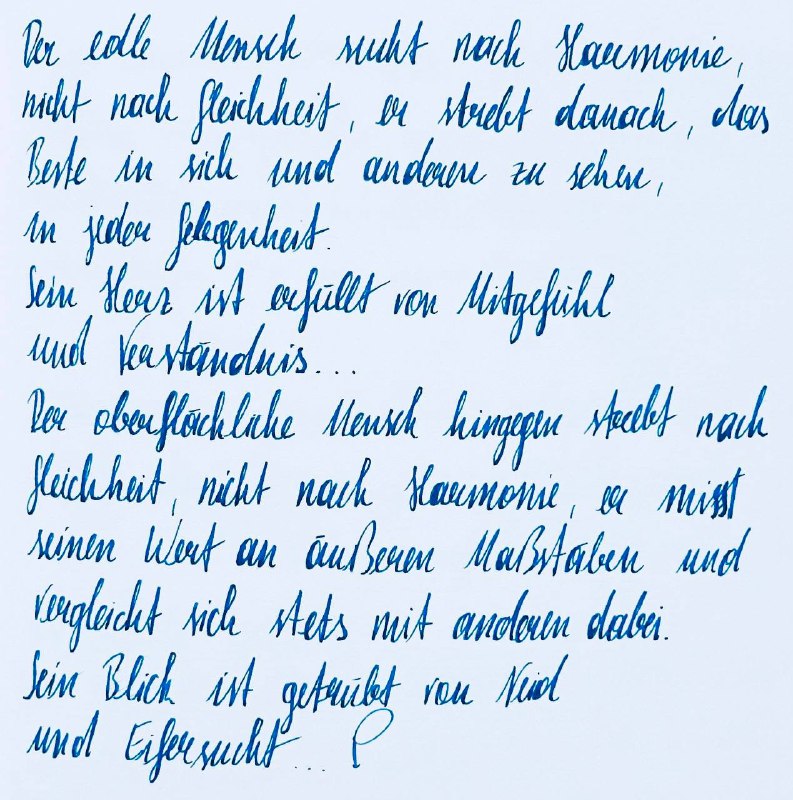 Der edle Mensch sucht nach Harmonie,
nicht nach Gleichheit, er strebt danach, das
Beste in sich und anderen zu sehen,
in jeder Gelegenheit.
Sein Herz ist erfüllt von Mitgefühl
und Verständnis...
Der oberflächliche Mensch hingegen strebt nach
Gleichheit, nicht nach Harmonie, er misst
seinen Wert an äußeren Maßstäben und
vergleicht sich stets mit anderen dabei.
Sein Blick ist getrübt von Neid
und Eifersucht...